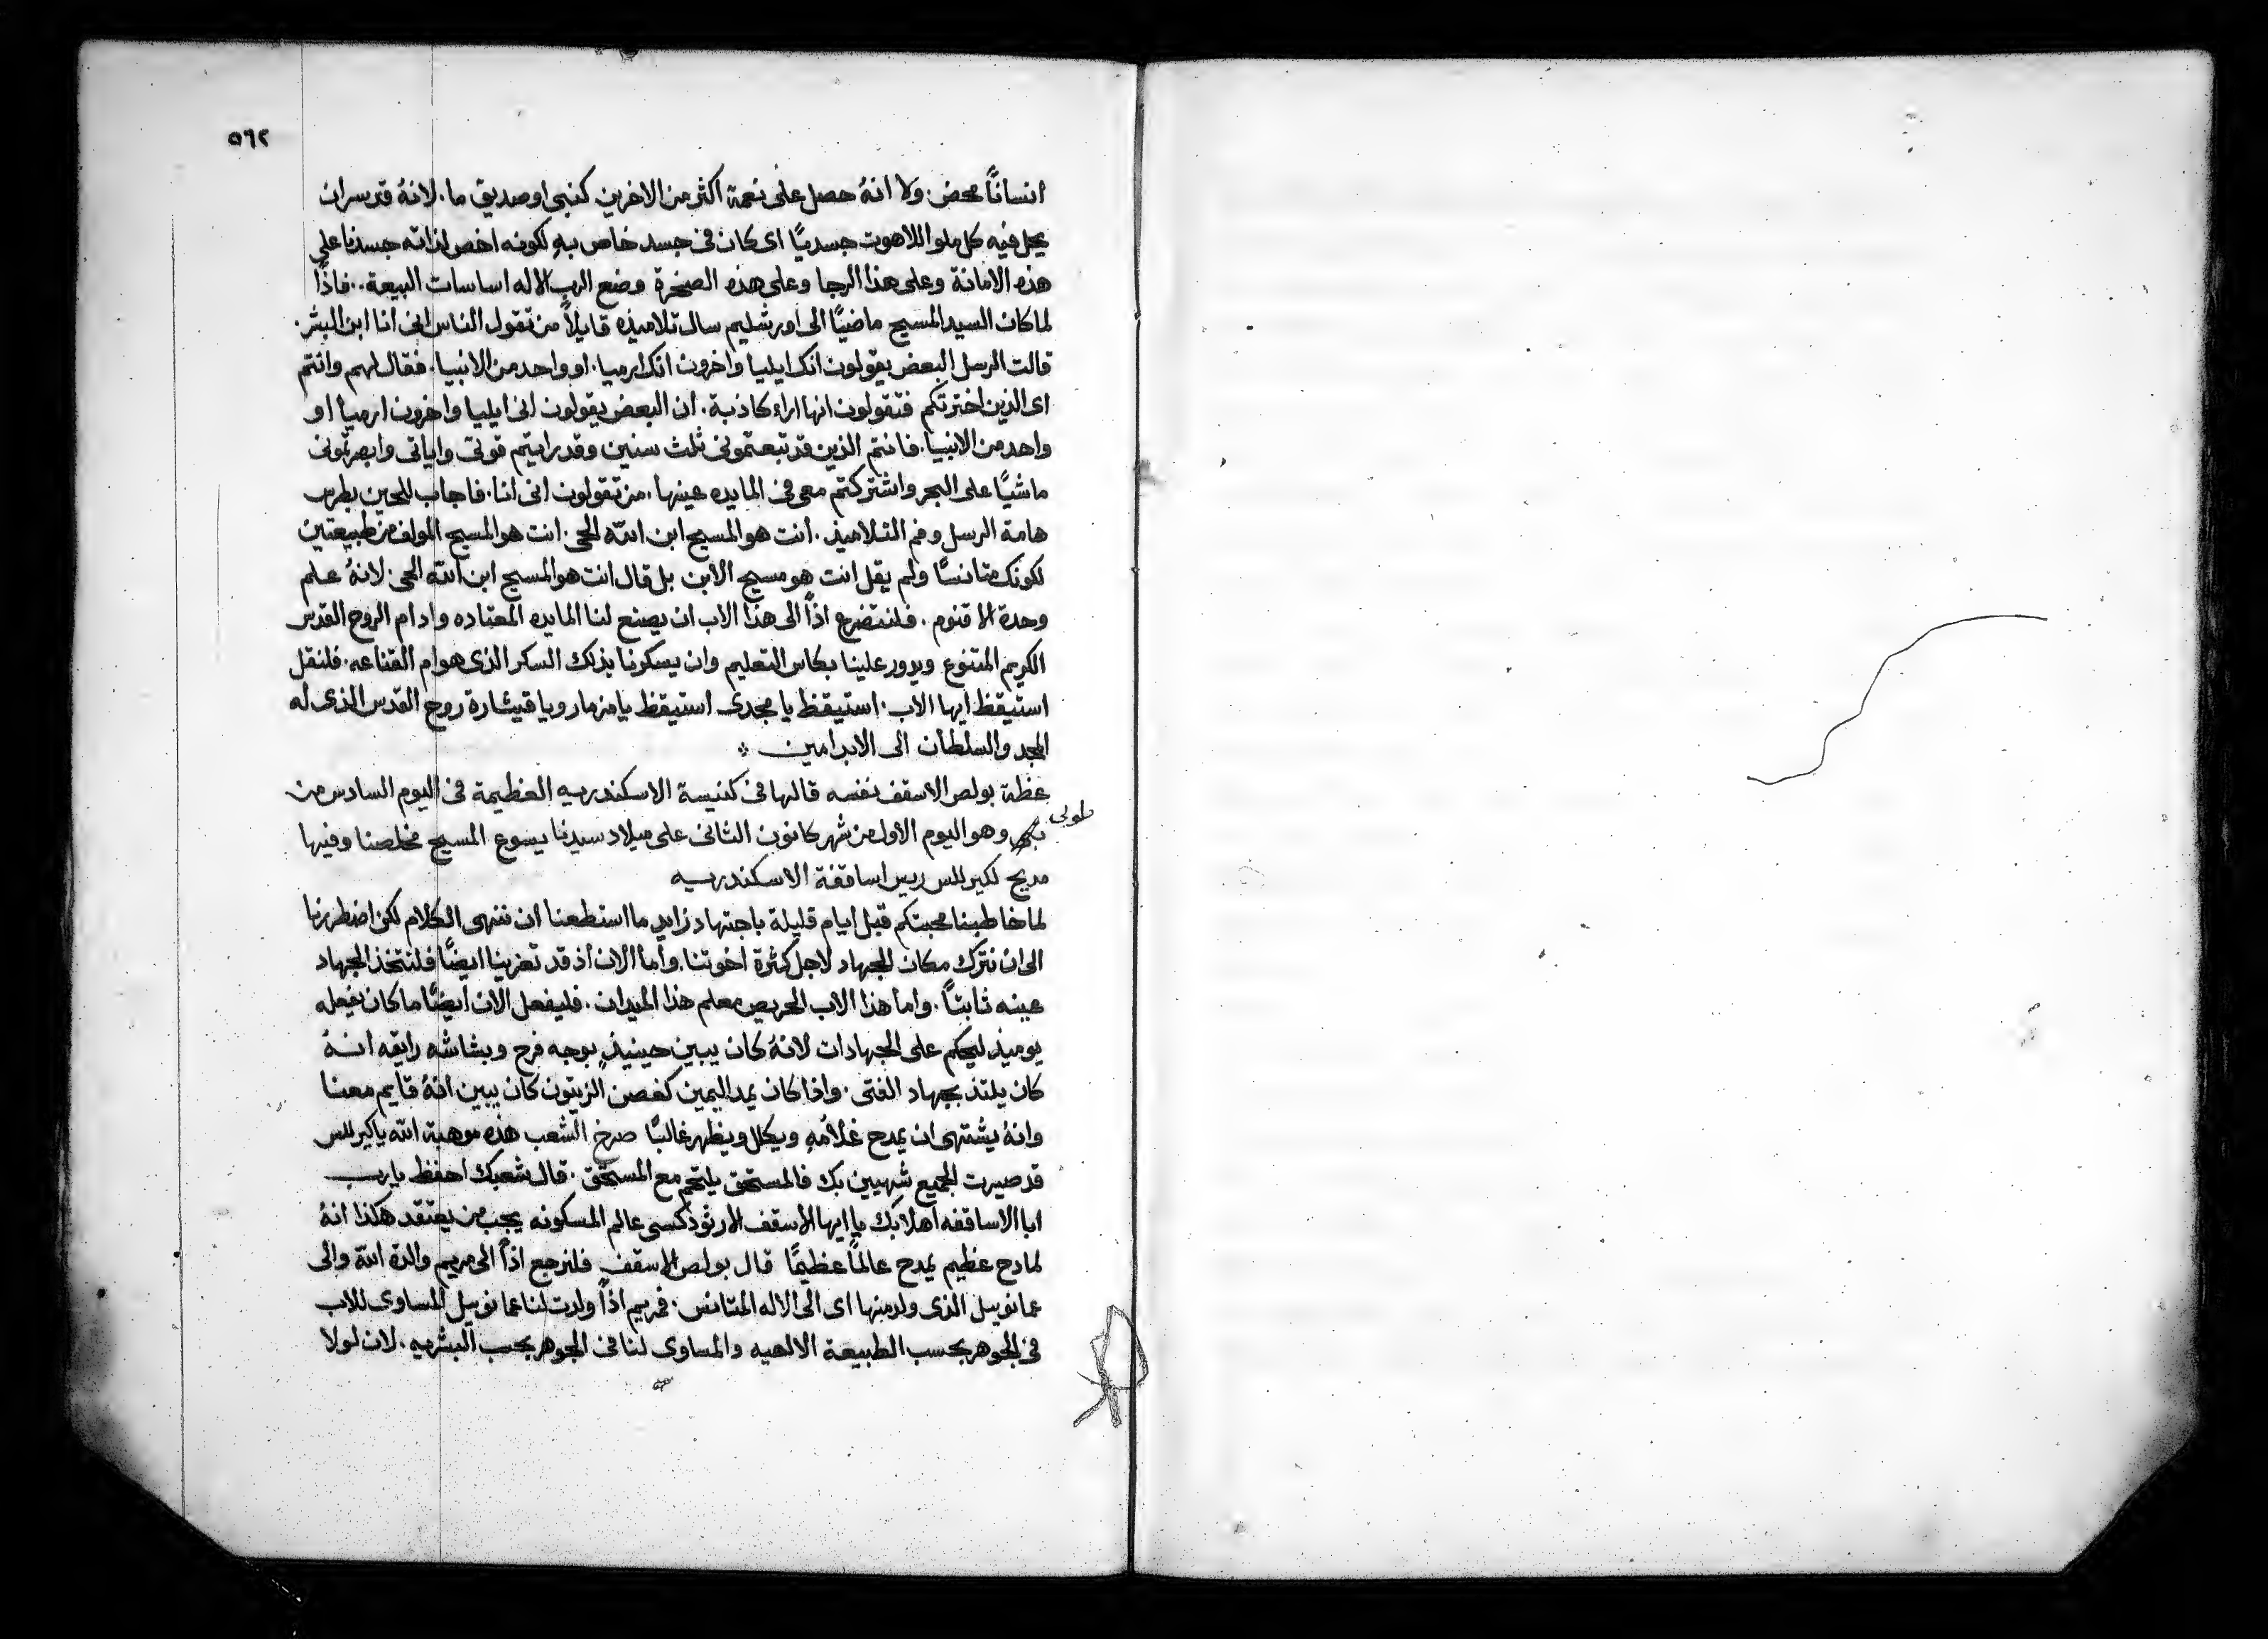 ٥٦٢
انسانًا محض. ولا انهُ حصل على نعمة اكثر من الاخرين كنبى او صديق ما. لانهُ قد سر ان
يحل فيه كل ملو اللاهوت جسديًا اى كان فى جسد خاص به لكونه اخص لذاته جسدنا على
هذه الامانة وعلى هذا الرجا وعلى هذه الصخرة وضع الرب الاله اساسات البيعة.. فاذًا
لما كان السيد المسيح ماضيًا الى اورشليم سال تلاميذه قايلاً من تقول الناس انى انا ابن البشر.
قالت الرسل البعض يقولون انك ايليا واخرون انك ارميا. او واحد من الانبيا. فقال لهم وانتم
اى الذين اخترتكم فتقولون انها اراء كاذبة. ان البعض يقولون انى ايليا واخرون ارميا او
واحد من الانبيا. فانتم الذين قد تبعتمونى ثلث سنين وقد رايتم قوتى واياتى وابصرتمونى
ماشيًا على البحر واشتركتم معى فى المايده عينها. من تقولون انى انا. فاجاب للحين بطرس
هامة الرسل وفم التلاميذ. انت هو المسيح ابن الله الحى. انت هو المسيح المولف من طبيعتين
لكونك متانسًا ولم يقل انت هو مسيح الابن بل قال انت هو المسيح ابن الله الحى. لانهُ علم
وحدة الاقنوم. فلنتضرع اذًا الى هذا الاب ان يصنع لنا المايده المعتاده وادام الروح القدس
الكريم المتنوع ويدور علينا بكاس التعليم وان يسكرنا بذلك السكر الذى هو ام القناعه. فلنقل
استيقظ ايها الاب. استيقظ يا مجدى استيقظ يا مزمار ويا قيثارة روح القدس الذى له
المجد والسلطان الى الابد امين
عظة بولص الاسقف نفسه قالها فى كنيسة الاسكندريه العظيمة فى اليوم السادس من
طوبى
وهو اليوم الاول من شهر كانون الثانى على ميلاد سيدنا يسوع المسيح مخلصنا وفيها
مديح لكيرللس رييس اساقفة الاسكندريه
لما خاطبنا محبتكم قبل ايام قليلة باجتهاد زايد ما استطعنا ان ننهى الكلام لكن اضطررنا
الى ان نترك مكان الجهاد لاجل كثرة اخوتنا. واما الان اذ قد تعزينا ايضًا فلنتخذ الجهاد
عينه ثابتًا. واما هذا الاب الحريص معلم هذا الميدان. فليفعل الان ايضًا ما كان يفعله
يوميذٍ ليحكم على الجهادات لانهُ كان يبين حينيذٍ بوجه فرح وبشاشه رايقه انهُ
كان يلتذ بجهاد الفتى. واذا كان يمد اليمين كغصن الزيتون كان يبين انهُ قايم معنا
وانهُ يشتهى ان يمدح غلامهِ ويكلل ويظهر غالبًا صرخ الشعب هذه موهبة الله يا كيرللس
قد صيرت الجميع شهيين بك فالمستحق يلتحم مع المستحق. قال شعبك احفظ يا رب
ابا الاساقفه اهلا بك يا ايها الاسقف الارثوذكسى عالم المسكونه يجب من يعتقد هكذا انهُ
لمادح عظيم يمدح عالمًا عظيمًا قال بولص الاسقف فلنرجع اذًا الى مريم والدة الله والى
عمانوييل الذى ولد منها اى الى الاله المتانس. فمريم اذًا ولدت لنا عمانوييل المساوى للاب
فى الجوهر بحسب الطبيعة الالهيه والمساوى لنا فى الجوهر بحسب البشريه. لان لولا